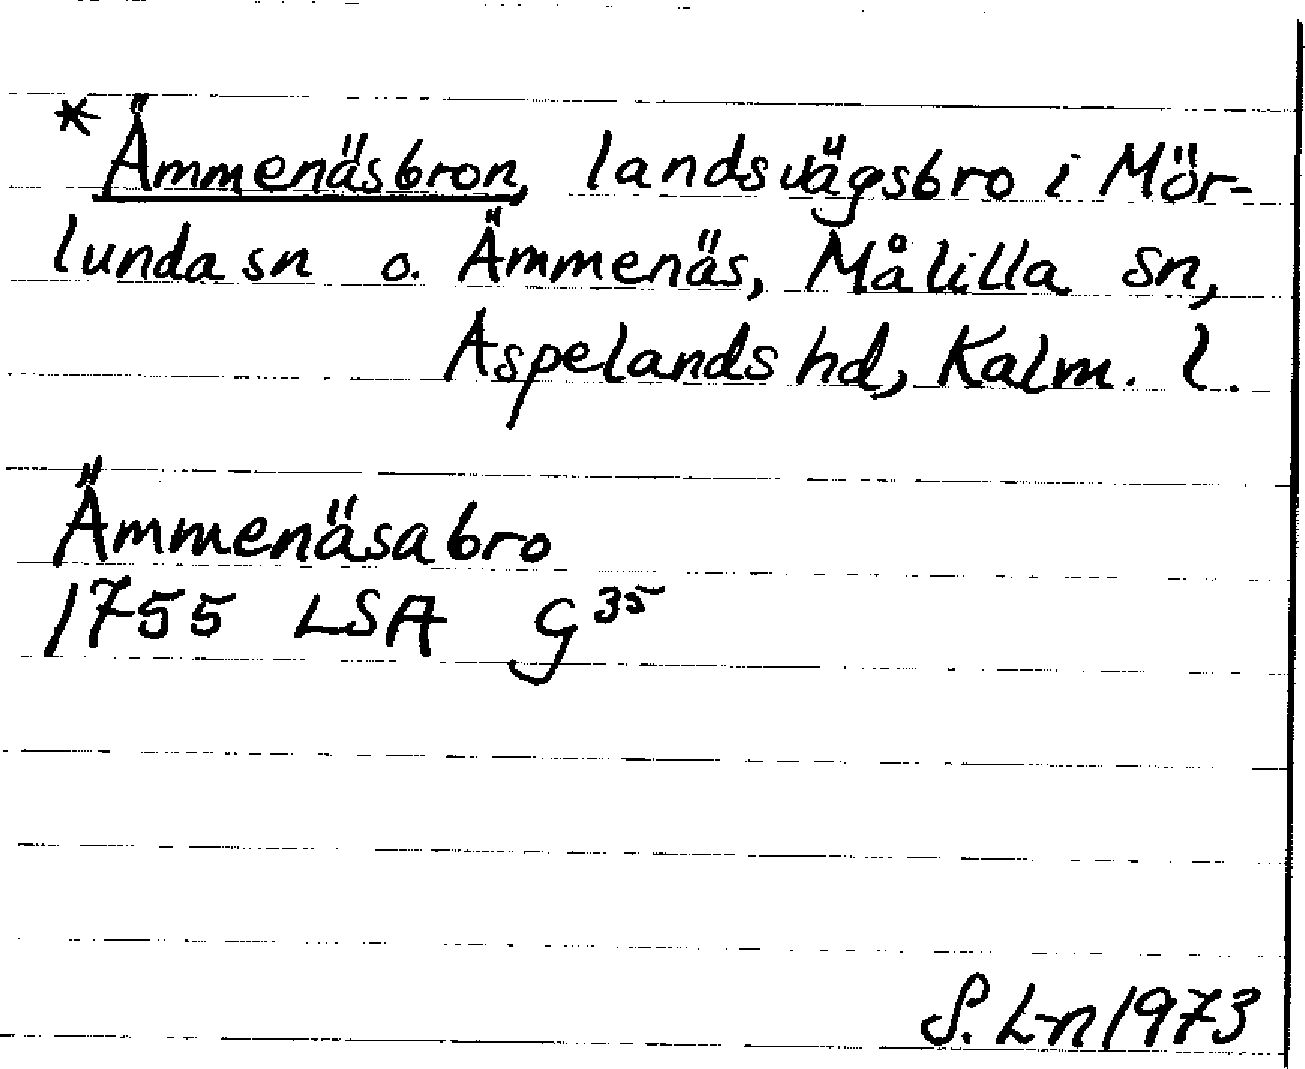 * Ämmenäsbron, landsvägsbro i Mör-
lunda sn o. Ämmenäs, Målilla sn,
Aspelands hd, Kalm. l.
Ämmenäsabro
1755 LSA G35
S. L-n 1973